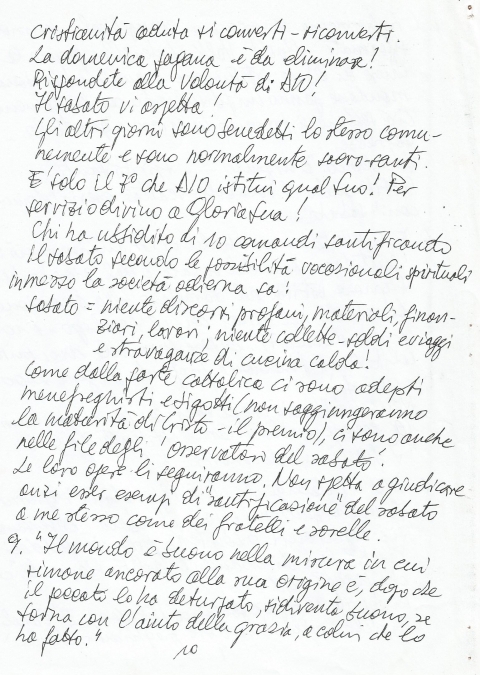 Cristianità caduta si converti - riconverti.
La domenica pagana è da eliminare!
Rispondete alla volontà di DIO!
Il sabato vi aspetta!
Gli altri giorni sono benedetti lo stesso comu-
nemente e sono normalmente sacro-santi.
E' solo il 7º che DIO istituì qual Suo! Per
servizio divino a Gloria Sua!
Chi ha ubbidito di 10 comandi santificando
il sabato secondo le possibilità vocazionali spirituali
in mezzo la società odierna sa!
sabato = niente discorsi profani, materiali, finan-
ziari, lavori; niente collette-soldi e viaggi
e stravaganze di cucina calda!
Come dalla parte cattolica ci sono adepti
menefreghisti e bigotti (non raggiungeranno
la maturità di Cristo - il premio), ci sono anche
nelle file degli 'osservatori del sabato'.
Le loro opere li seguiranno. Non spetta a giudicare
anzi esser esempi di "santificazione" del sabato
a me stesso come dei fratelli e sorelle.
9. "Il mondo è buono nella misura in cui
rimane ancorato alla sua origine e, dopo che
il peccato lo ha deturpato, ridiventa buono, se
torna con l'aiuto della grazia, a colui che lo
ha fatto."
10